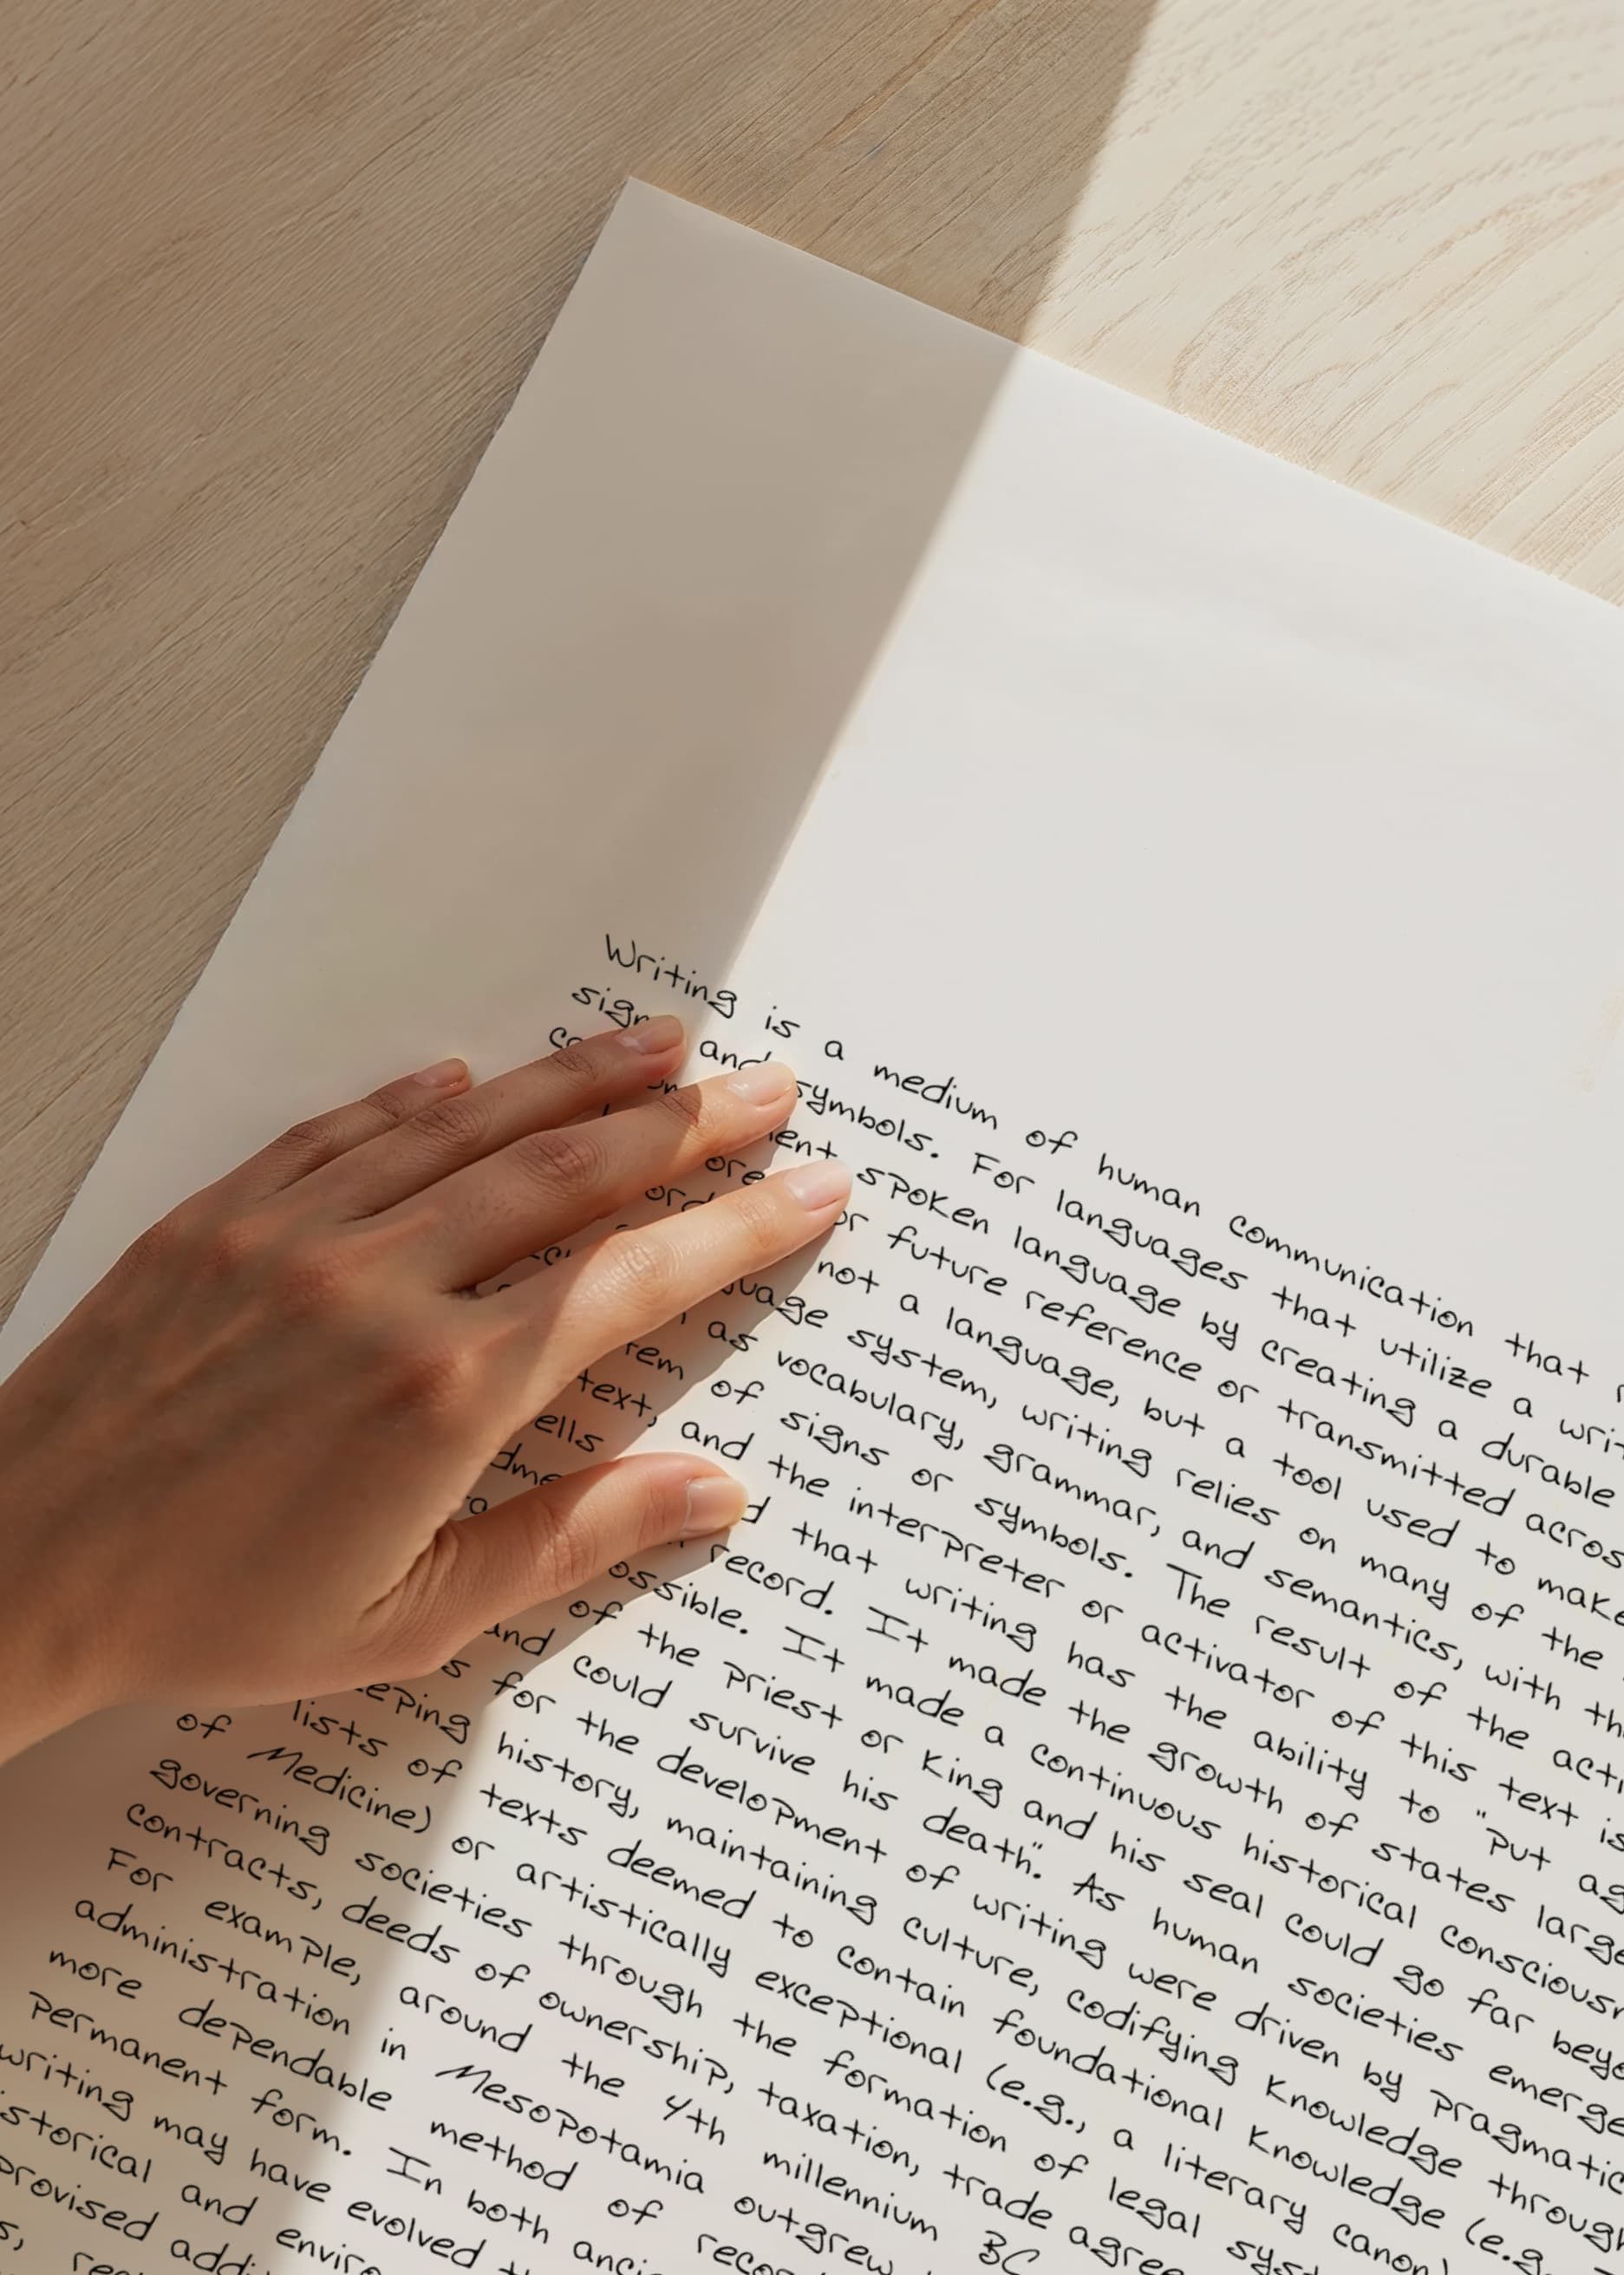 Writing is a medium of human communication that
and symbols. For languages that utilize a writ
ent spoken language by creating a durable
or future reference or transmitted acros
not a language, but a tool used to make
uage system, writing relies on many of the
as vocabulary, grammar, and semantics, with th
tem of signs or symbols. The result of the acti
text, and the interpreter or activator of this text is
ells d that writing has the ability to "put ag
record. It made the growth of states large
ossible. It made a continuous historical consciousn
of the priest or king and his seal could go far beyo
and could survive his death". As human societies emerge
s for the development of writing were driven by pragmatic
eping history, maintaining culture, codifying knowledge through
lists of texts deemed to contain foundational knowledge (e.g.
of Medicine) or artistically exceptional (e.g., a literary canon)
governing societies through the formation of legal syst
contracts, deeds of ownership, taxation, trade agree
For example, around the 4th millennium BC
administration in Mesopotamia outgrew
more dependable method of recor
permanent form. In both anci
writing may have evolved
istorical and enviro
provised addi
s, rec